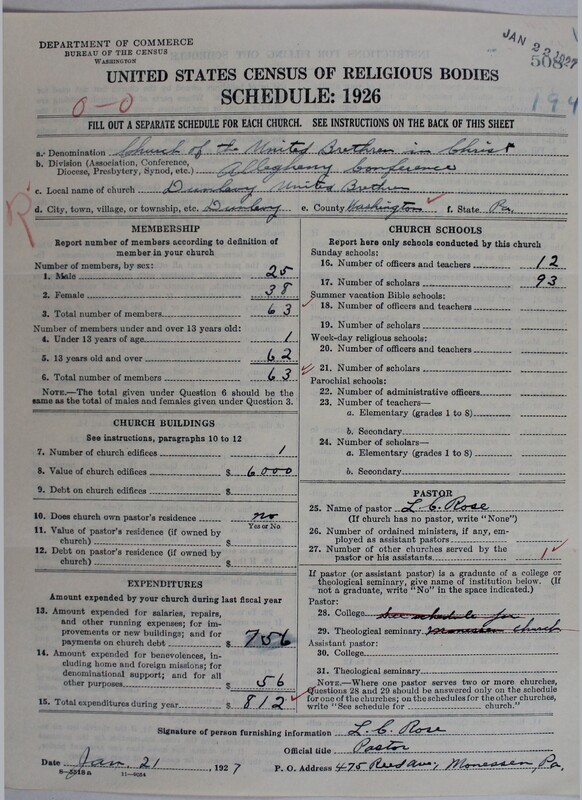 DEPARTMENT OF COMMERCE
BUREAU OF THE CENSUS
WASHINGTON
JAN 22 1927
UNITED STATES CENSUS OF RELIGIOUS BODIES
SCHEDULE: 1926
0-0
194
FILL OUT A SEPARATE SCHEDULE FOR EACH CHURCH. SEE INSTRUCTIONS ON THE BACK OF THIS SHEET
a. Denomination Church of the United Brethren in Christ
b. Division (Association, Conference, Diocese, Presbytery, Synod, etc.) Allegheny Conference
c. Local name of church Dunlevy United Brethren
d. City, town, village, or township, etc. Dunlevy e. County Washington f. State Pa.
R
MEMBERSHIP
Report number of members according to definition of
member in your church
Number of members, by sex:
1. Male 25
2. Female 38
3. Total number of members 63
Number of members under and over 13 years old:
4. Under 13 years of age 1
5. 13 years old and over 62
6. Total number of members 63
NOTE.—The total given under Question 6 should be the
same as the total of males and females given under Question 3.
CHURCH BUILDINGS
See instructions, paragraphs 10 to 12
7. Number of church edifices 1
8. Value of church edifices $ 6000
9. Debt on church edifices $
10. Does church own pastor's residence no
Yes or No
11. Value of pastor's residence (if owned by
church) $
12. Debt on pastor's residence (if owned by
church) $
EXPENDITURES
Amount expended by your church during last fiscal year
13. Amount expended for salaries, repairs,
and other running expenses; for im-
provements or new buildings; and for
payments on church debt $ 756
14. Amount expended for benevolences, in-
cluding home and foreign missions; for
denominational support; and for all
other purposes $ 56
15. Total expenditures during year $ 812
CHURCH SCHOOLS
Report here only schools conducted by this church
Sunday schools:
16. Number of officers and teachers 12
17. Number of scholars 93
Summer vacation Bible schools:
18. Number of officers and teachers
19. Number of scholars
Week-day religious schools:
20. Number of officers and teachers
21. Number of scholars
Parochial schools:
22. Number of administrative officers
23. Number of teachers—
a. Elementary (grades 1 to 8)
b. Secondary
24. Number of scholars—
a. Elementary (grades 1 to 8)
b. Secondary
PASTOR
25. Name of pastor L. C. Rose
(If church has no pastor, write "None")
26. Number of ordained ministers, if any, em-
ployed as assistant pastors
27. Number of other churches served by the
pastor or his assistants 1
If pastor (or assistant pastor) is a graduate of a college or
theological seminary, give name of institution below. (If
not a graduate, write "No" in the space indicated.)
Pastor:
28. College See schedule for
29. Theological seminary Monessen church
Assistant pastor:
30. College
31. Theological seminary
NOTE.—Where one pastor serves two or more churches,
Questions 28 and 29 should be answered only on the schedule
for one of the churches; on the schedules for the other churches,
write "See schedule for church."
Signature of person furnishing information L. C. Rose
Official title Pastor
Date Jan. 21 1927 P. O. Address 475 Reed Ave, Monessen, Pa.
8-5518a 11-9034